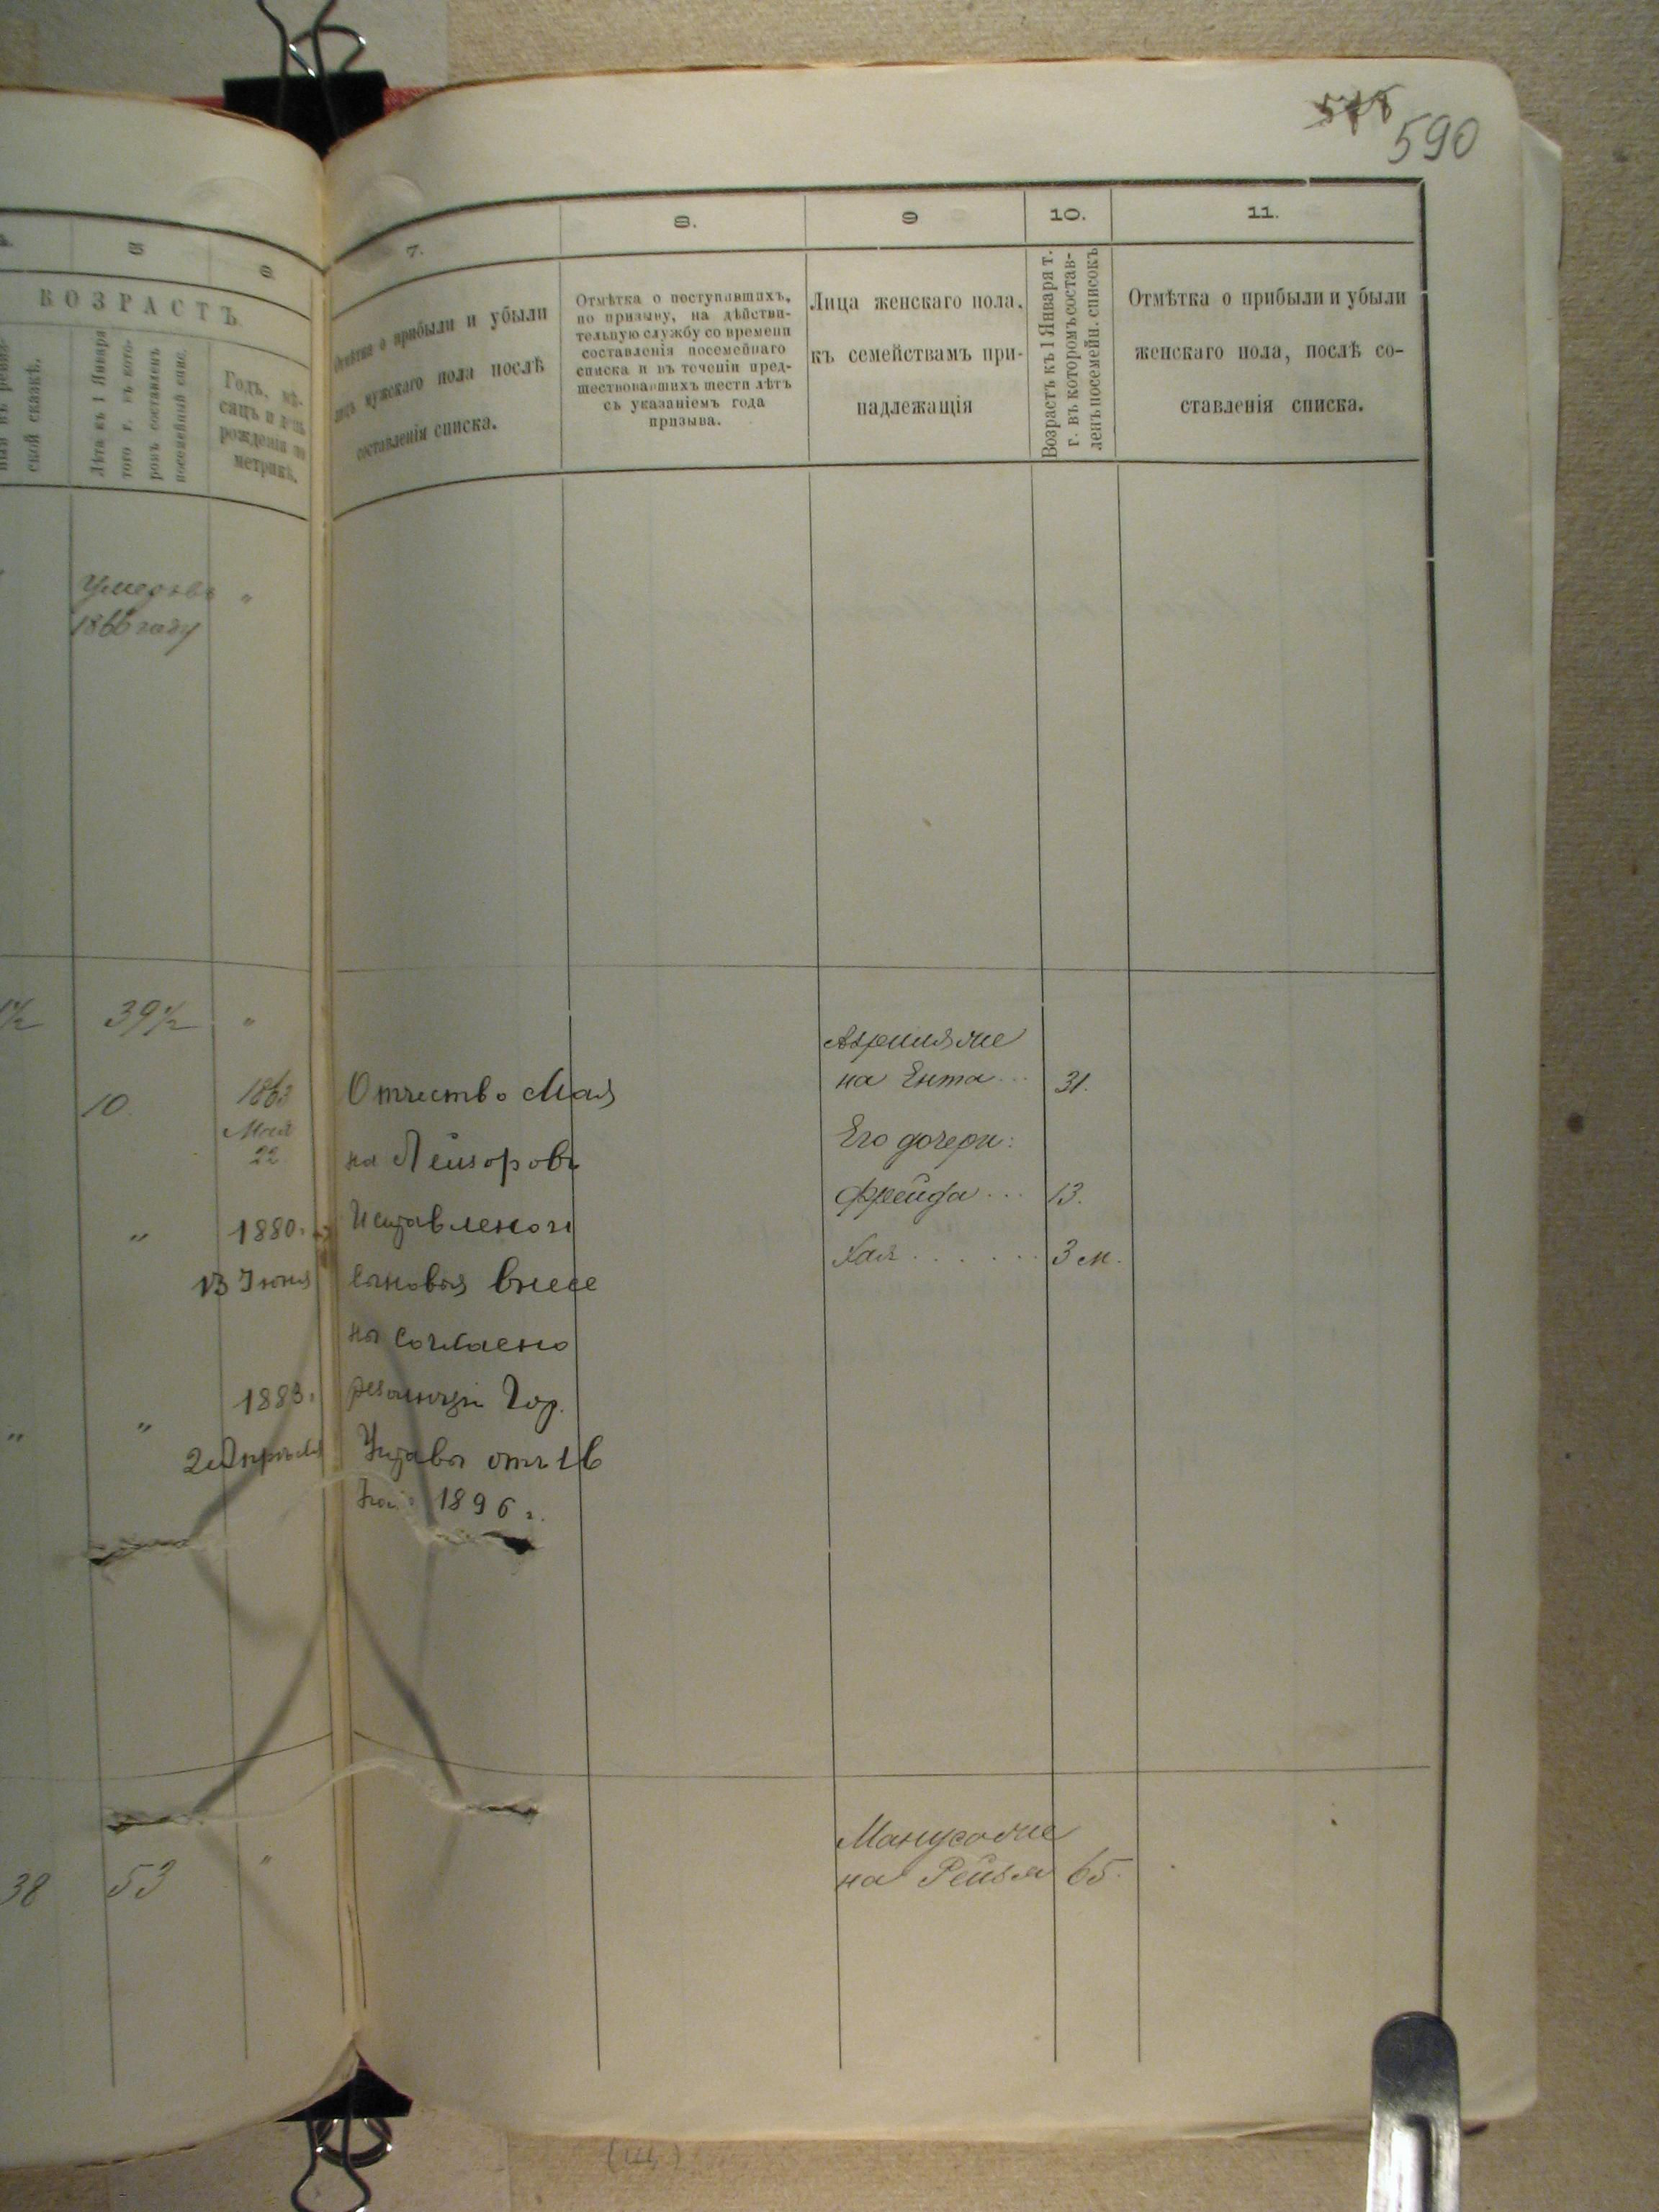 590
5
6
ВОЗРАСТЪ
ской сказкѣ.
Лѣта къ 1 Января
того г. въ кото-
ромъ составленъ
посемейный спис.
Годъ, мѣ-
сяцъ и день
рожденія по
метрикѣ.
Умеръ въ "
1866 году
39½ "
10. 1863
Мая
22
" 1880.
13 Іюня
" " 1883.
2 Апрѣля
38 53 "
7. 8. 9 10. 11.
Отмѣтка о прибыли и убыли
лицъ мужскаго пола послѣ
составленія списка.
Отмѣтка о поступившихъ,
по призыву, на дѣйстви-
тельную службу со времени
составленія посемейнаго
списка и въ теченіи пред-
шествовавшихъ шести лѣтъ
съ указаніемъ года
призыва.
Лица женскаго пола.
къ семействамъ при-
надлежащія
Возрастъ къ 1 Января т.
г. въ которомъ состав-
ленъ посемейн. списокъ
Отмѣтка о прибыли и убыли
женскаго пола, послѣ со-
ставленія списка.
Отчество Мая
на Лейзоровъ
Исправлено и
сыновья внесе
ны согласно
резолюціи Гор.
Управы отъ 16
1896 г.
на Ента... 31.
Его дочери:
Фрейда... 13.
Хая...... 3 м.
на Рейзя 65.